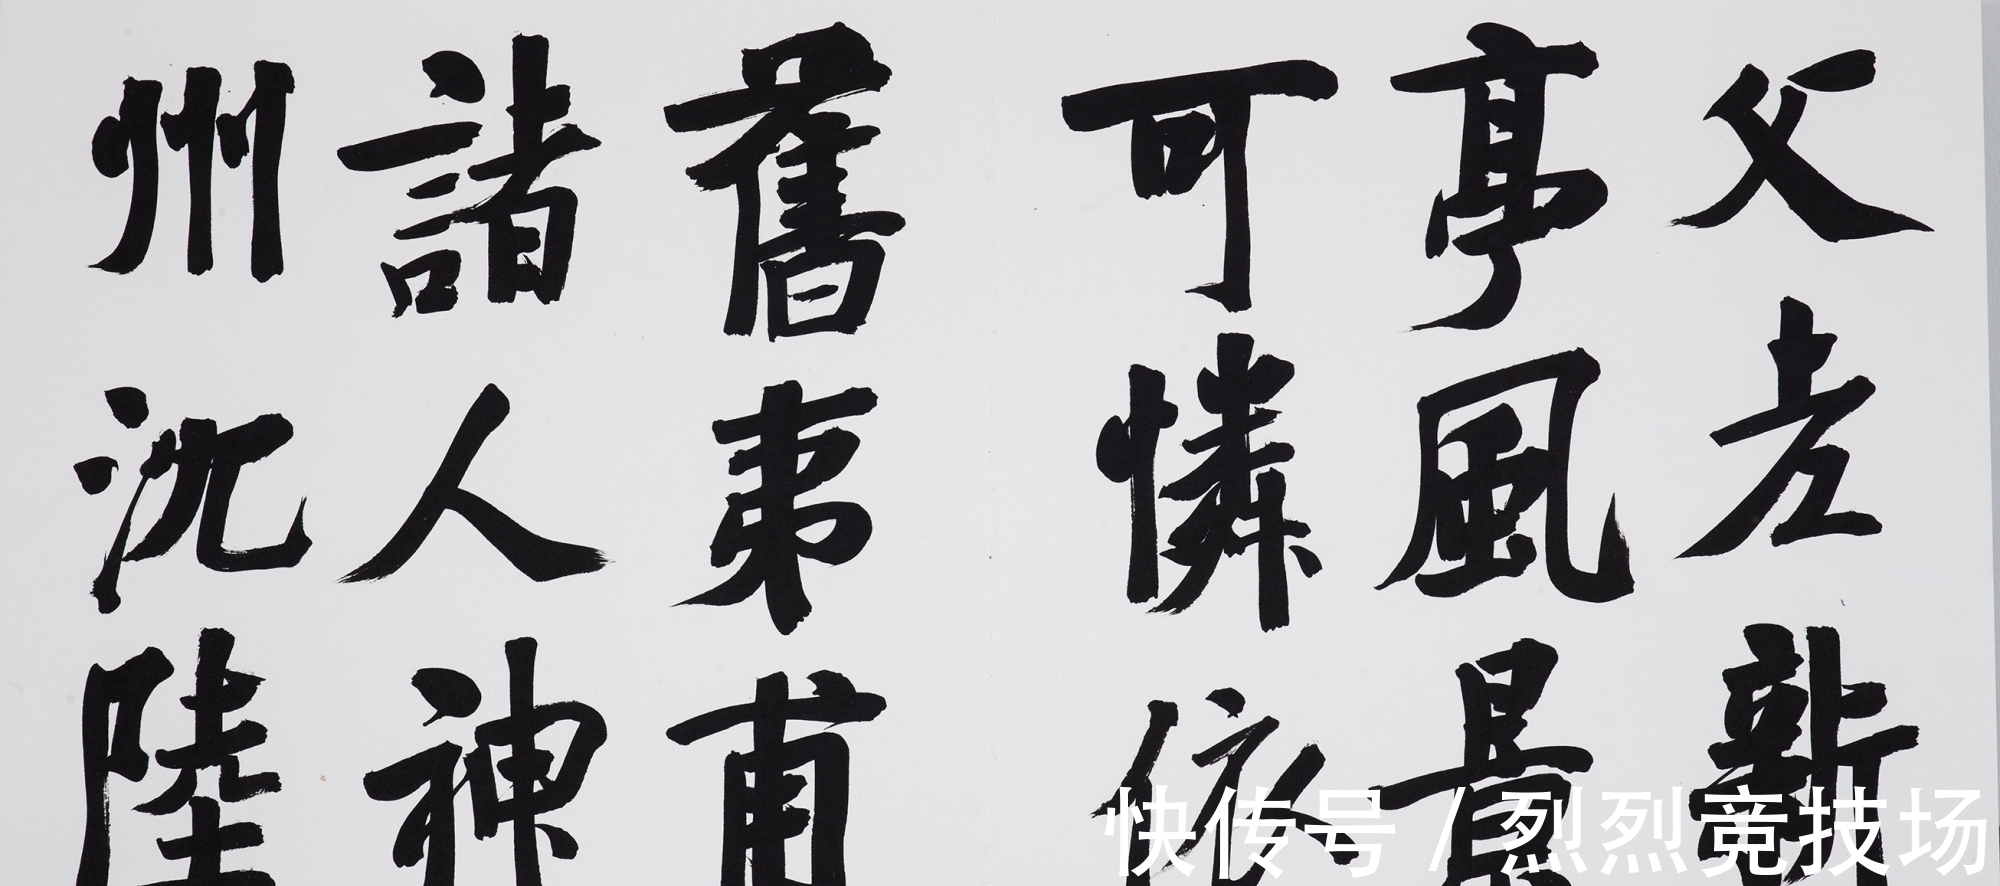 父老新
亭風景
可憐依
舊夷甫
諸人神
州沉陸
快传号 / 烈烈竞技场